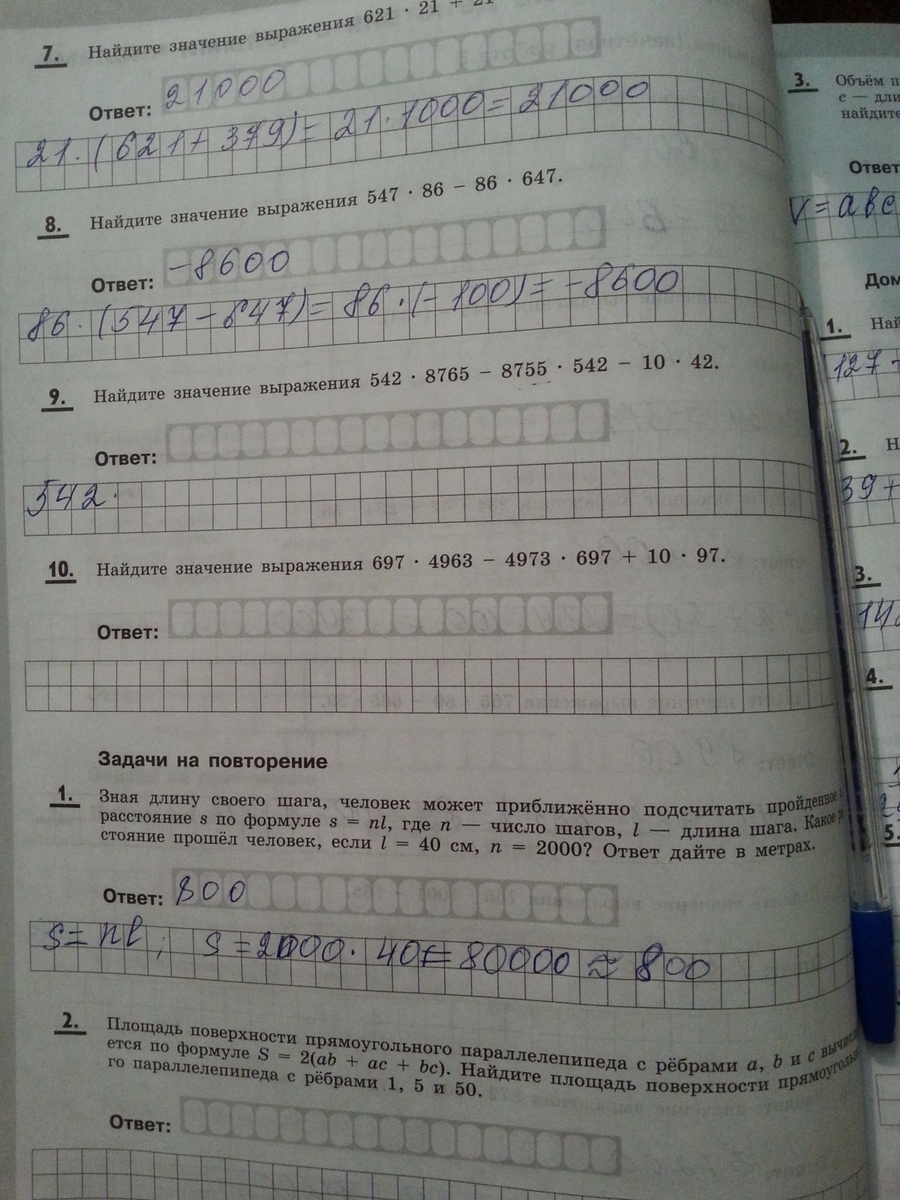 7. Найдите значение выражения 621 · 21 + 21
Ответ: 21000
21·(621+379)=21·1000=21000
8. Найдите значение выражения 547 · 86 − 86 · 647.
Ответ: −8600
86·(547−647)=86·(−100)=−8600
9. Найдите значение выражения 542 · 8765 − 8755 · 542 − 10 · 42.
Ответ:
542·
10. Найдите значение выражения 697 · 4963 − 4973 · 697 + 10 · 97.
Ответ:
Задачи на повторение
1. Зная длину своего шага, человек может приближённо подсчитать пройденное
расстояние s по формуле s = nl, где n — число шагов, l — длина шага. Какое
стояние прошёл человек, если l = 40 см, n = 2000? Ответ дайте в метрах.
Ответ: 800
s=nl; s=2000·40=80000≈800
2. Площадь поверхности прямоугольного параллелепипеда с рёбрами a, b и c
ется по формуле S = 2(ab + ac + bc). Найдите площадь поверхности
го параллелепипеда с рёбрами 1, 5 и 50.
Ответ:
3. Объём
c —
найдите
Ответ
V=abc
1.
127
2.
39+
3.
4.
5.